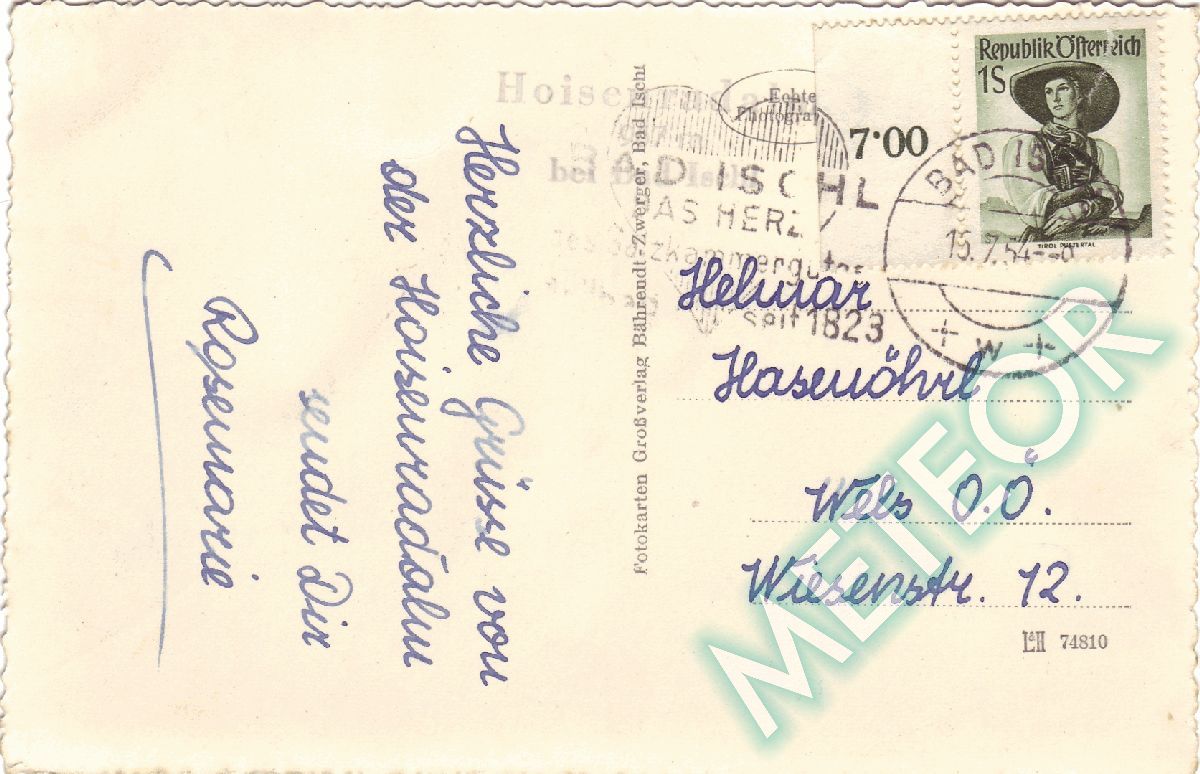 Herzliche Grüsse von
der Hoisenradalm
sendet Dir
Rosemarie
Fotokarten Großverlag Bährendt-Zwerger, Bad Ischl
bei Bad Ischl
Echte
BAD ISCHL
DAS HERZ
des Salzkammergutes
seit 1823
7·00
Republik Österreich
1S
TIROL PUSTERTAL
BAD IS
15.7.54
W
Helmar
Hasenöhrl
Wels O.Ö.
Wiesenstr. 12.
74810
METEOR